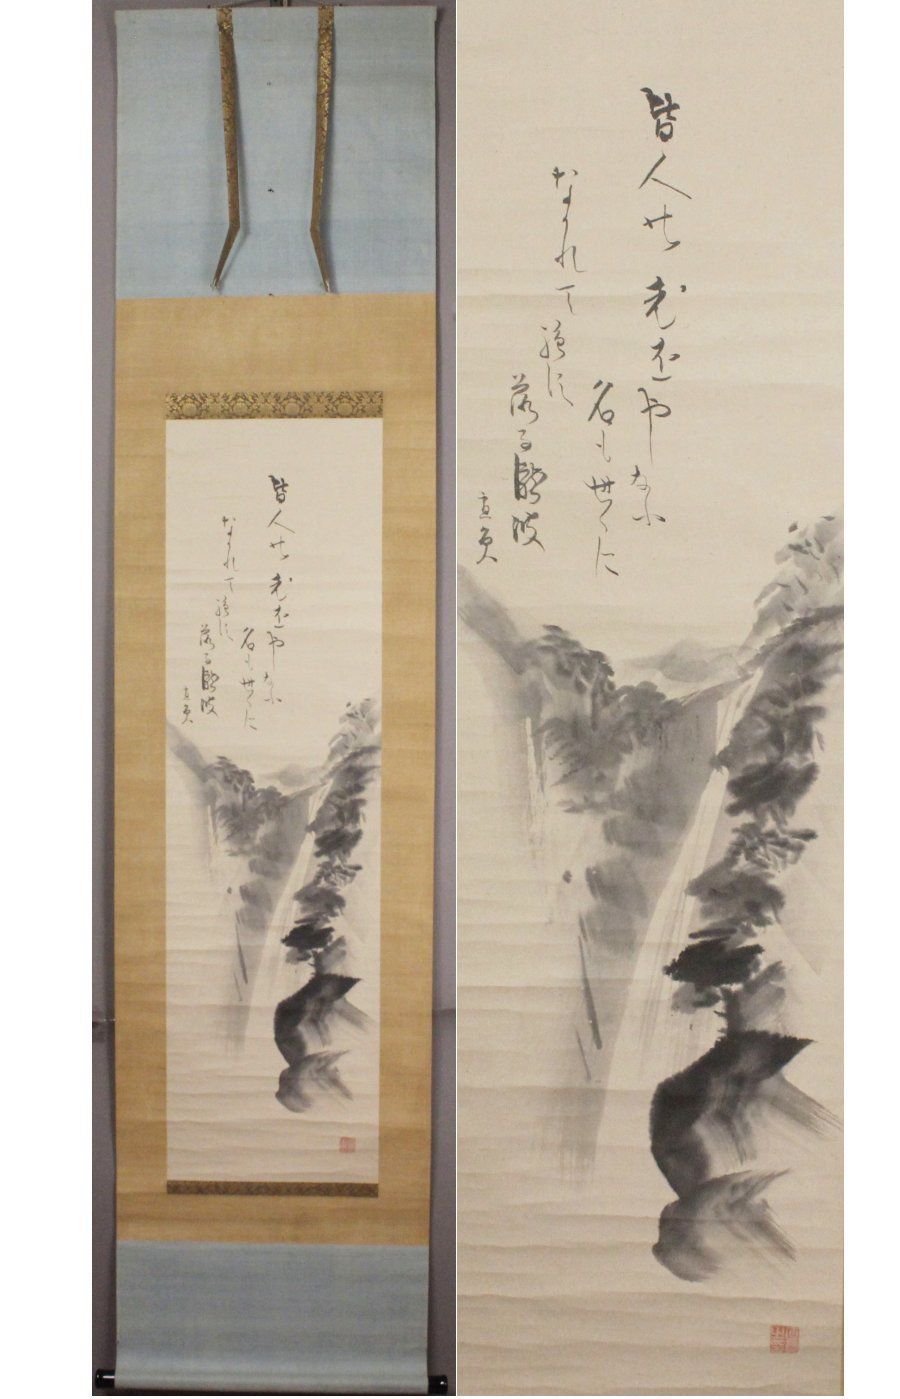 皆人の老をやしなふ
名も世々に
なかれて絶す
落る瀧波
皆人の老をやしなふ
名も世々に
なかれて絶す
落る瀧波